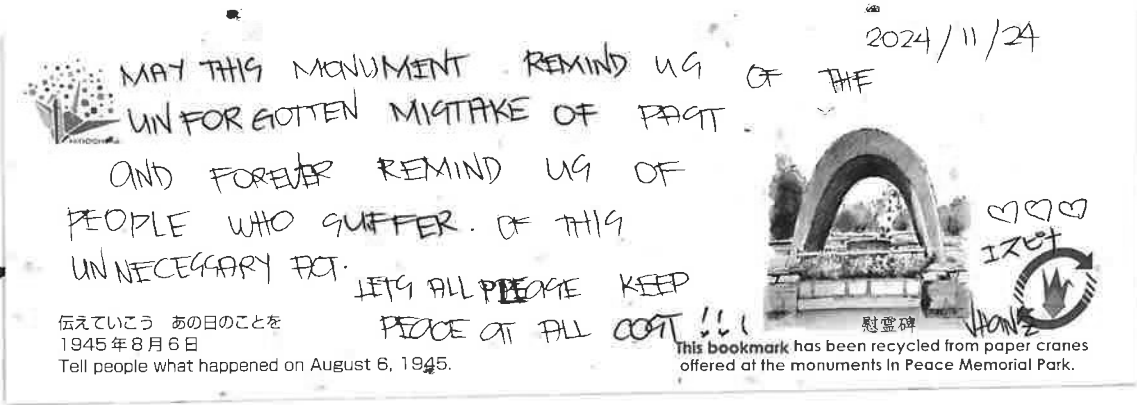 2024/11/24
MAY THIS MONUMENT REMIND US OF THE
UNFORGOTTEN MISTAKE OF PAST
AND FOREVER REMIND US OF
PEOPLE WHO SUFFER. OF THIS
UNNECESSARY ACT.
LETS ALL PLEASE KEEP
PEACE AT ALL COST!!!
エスピナ
伝えていこう あの日のことを
1945年8月6日
Tell people what happened on August 6, 1945.
慰霊碑
This bookmark has been recycled from paper cranes
offered at the monuments In Peace Memorial Park.